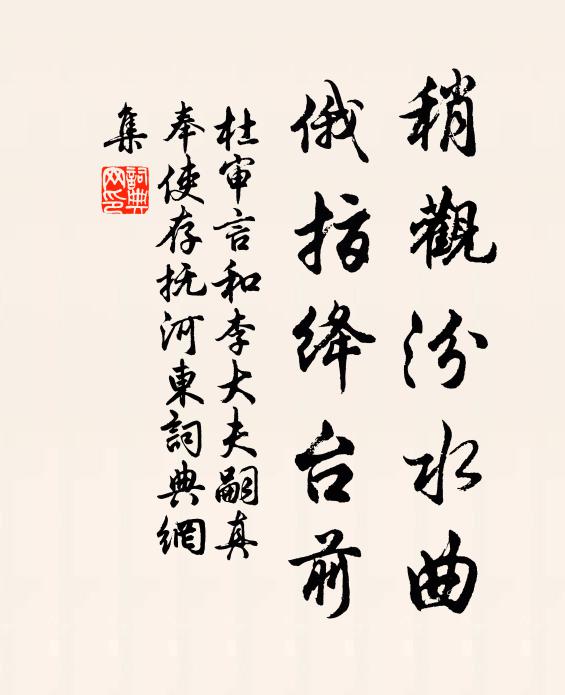 稍觀汾水曲
俄指绛台前
杜审言和李大夫嗣真
奉使存抚河東詞典網
集
詞典网印